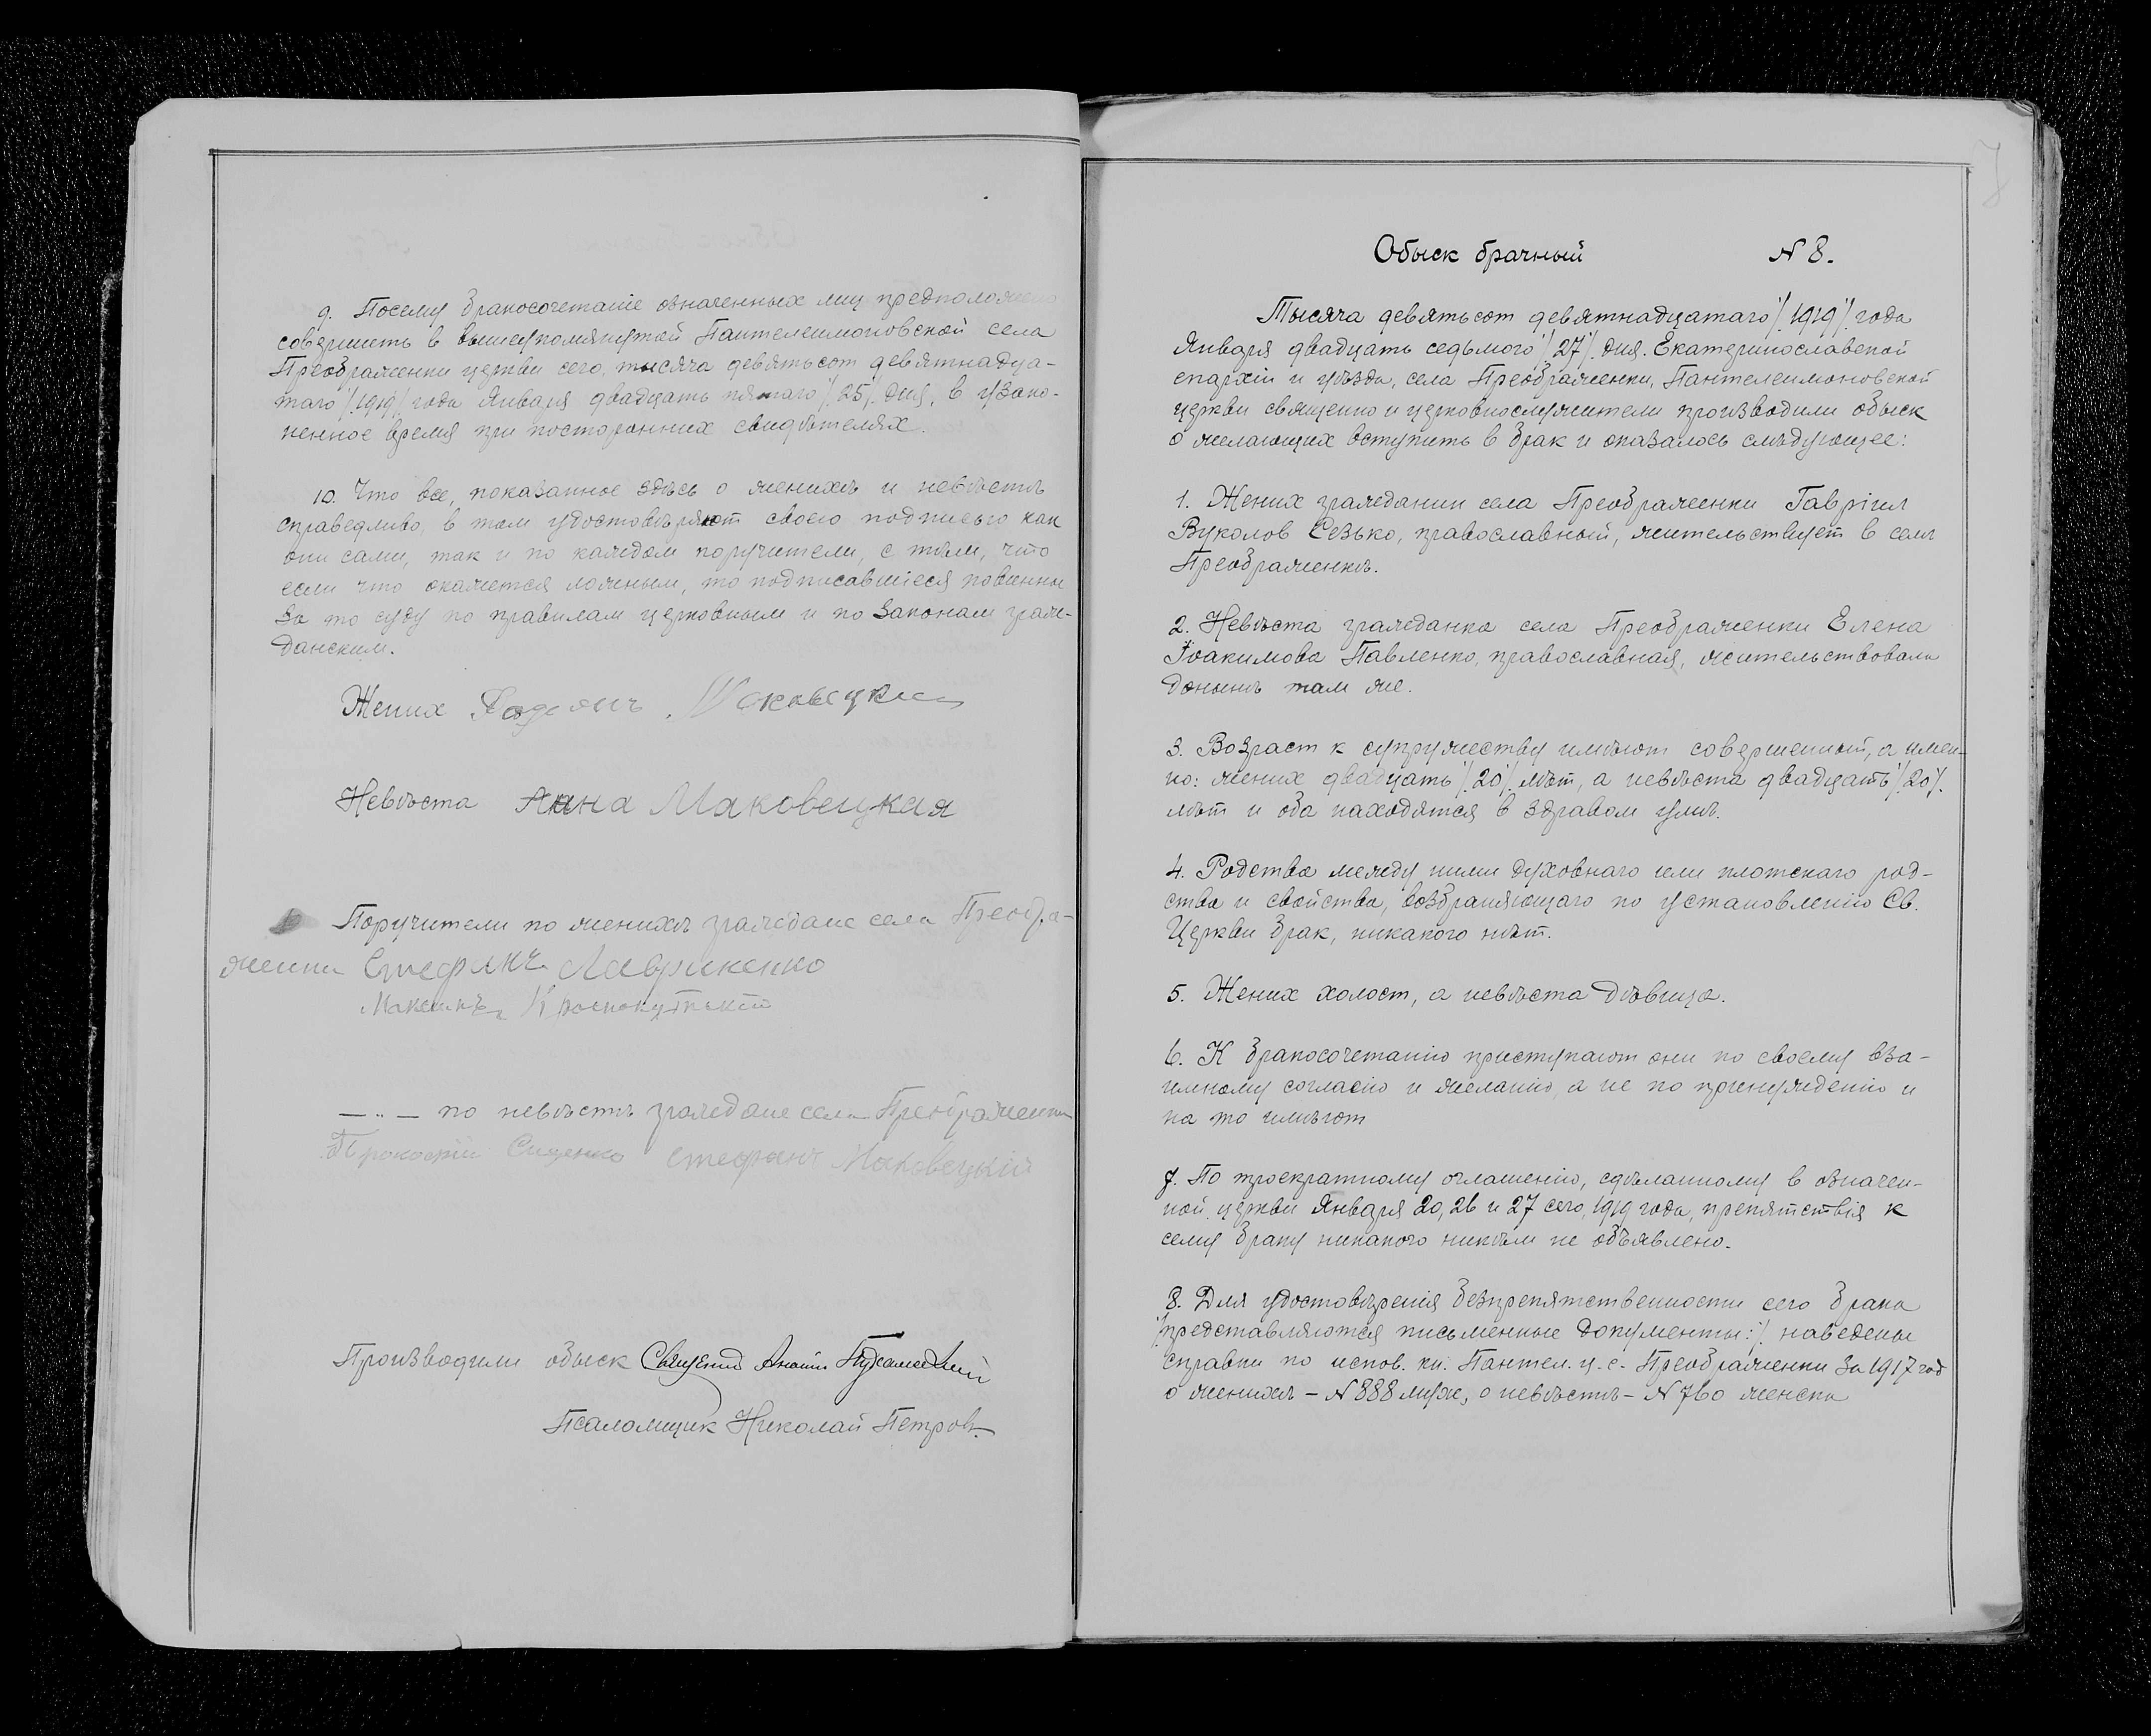 9. Посему бракосочетаніе означенных лиц предположено
совершить в вышеупомянутой Пантелеимоновской села
Преображенки церкви сего, тысяча девятьсот девятнадца-
таго /.1919/. года Января двадцать пятаго /.25/. дня, в узако-
ненное время при посторонних свидѣтелях.
10. Что все, показанное здѣсь о женихѣ и невѣстѣ
справедливо, в том удостовѣряют своею подписью как
они сами, так и по каждом поручители, с тѣм, что
если что окажется ложным, то подписавшіеся повинны
за то суду по правилам церковным и по законам граж-
данским.
Жених Маковецкий
Невѣста Анна Маковецкая
Поручители по женихѣ граждане села Преобра-
женки Стефанъ Лавриненко
Максимъ Краснокутскій
— „ — по невѣстѣ граждане села Преображенки
Сиденко Стефанъ Маковецкій
Производили обыск Священник
Псаломщик Николай Петров.
8
Обыск брачный N 8.
Тысяча девятьсот девятнадцатаго /.1919/. года
Января двадцать седьмого /.27/. дня. Екатеринославской
епархіи и уѣзда, села Преображенки, Пантелеимоновской
церкви священно и церковнослужители производили обыск
о желающих вступить в брак и оказалось слѣдующее:
1. Жених гражданин села Преображенки Гавріил
Вуколов Сезько, православный, жительствует в селѣ
Преображенкѣ.
2. Невѣста гражданка села Преображенки Елена
Іоакимова Павленко, православная, жительствовала
донынѣ там же.
3. Возраст к супружеству имѣют совершенный, а имен-
но: жених двадцать /.20/. лѣт, а невѣста двадцать /.20/.
лѣт и оба находятся в здравом умѣ.
4. Родства между ними духовнаго или плотскаго род-
ства и свойства, возбраняющаго по установленію Св.
Церкви брак, никакого нѣт.
5. Жених холост, а невѣста дѣвица.
6. К бракосочетанію приступают они по своему вза-
имному согласію и желанію, а не по принужденію и
на то имѣют
7. По троекратному оглашенію, сдѣланному в означен-
ной церкви Января 20, 26 и 27 сего, 1919 года, препятствія к
сему браку никакого никѣм не объявлено.
8. Для удостовѣренія безпрепятственности сего брака
/представляются письменные документы:/. наведены
справки по испов. кн. Пантел. ц. с. Преображенки за 1917 год
о женихѣ – N 888 муж., о невѣстѣ – N 760 женска